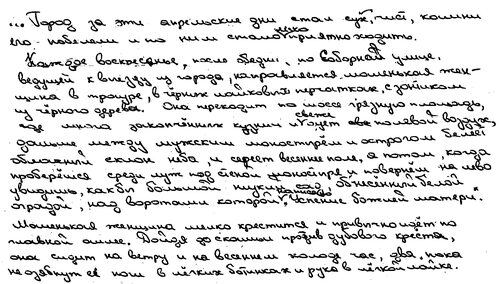 ... Город за эти апрельские дни стал сух, чист, камни
его побелели и по ним стало легко и приятно ходить.
Каждое воскресенье, после обедни, по Соборной улице,
ведущей к выезду из города, направляется маленькая жен-
щина в трауре, в чёрных лайковых перчатках, с зонтиком
из чёрного дерева. Она переходит по шоссе грязную площадь,
где много закопчённых кузниц и свежо дует полевой воздух,
дальше между мужским монастырём и острогом белеет
облачный склон неба и сереет весеннее поле, а потом, когда
проберёшься среди луж под стеной монастыря и повернёшь налево
увидишь, как бы большой низкий сад, обнесённый белой
оградой, над воротами которой написано "Успение божией матери".
Маленькая женщина мелко крестится и привычно идёт по
главной аллее. Дойдя до скамьи против дубового креста,
она сидит на ветру и на весеннем холоде час, два, пока
не озябнут её ноги в лёгких ботинках и рука в лёгкой лайке.